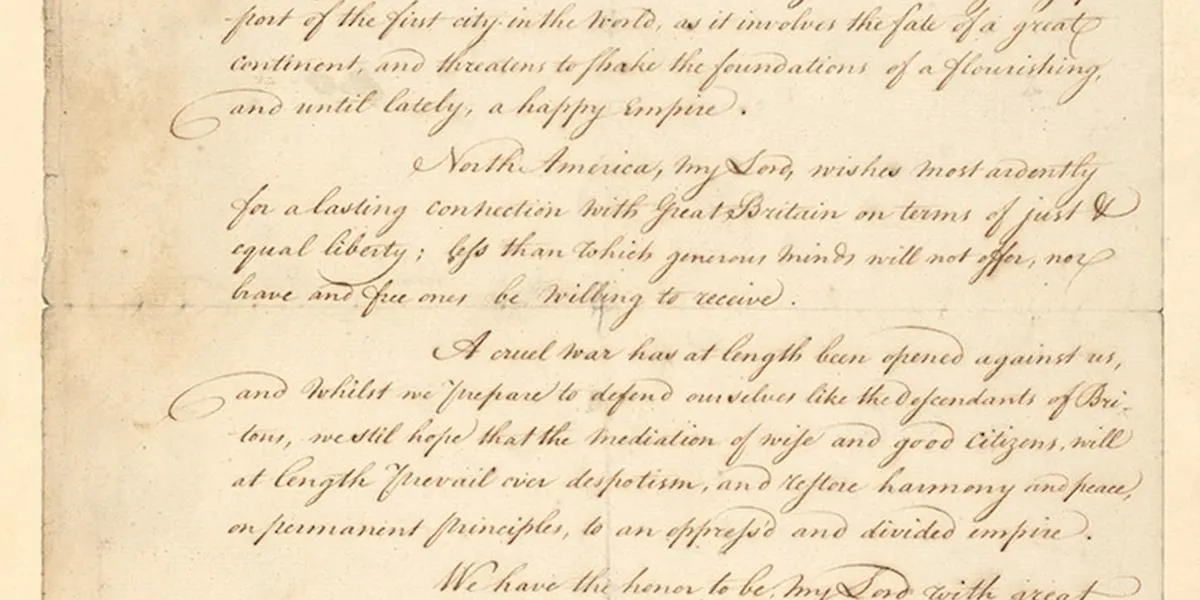 port of the first city in the World, as it involves the fate of a great
continent, and threatens to shake the foundations of a flourishing,
and until lately, a happy Empire.
North America, my Lord, wishes most ardently
for a lasting connection with Great Britain on terms of just &
equal liberty; less than which generous minds will not offer, nor
brave and free ones be willing to receive.
A cruel war has at length been opened against us,
and whilst we prepare to defend ourselves like the descendants of Bri-
tons, we stil hope that the mediation of wise and good Citizens, will
at length prevail over despotism, and restore harmony and peace,
on permanent principles, to an oppress'd and divided empire.
We have the honor to be, my Lord with great